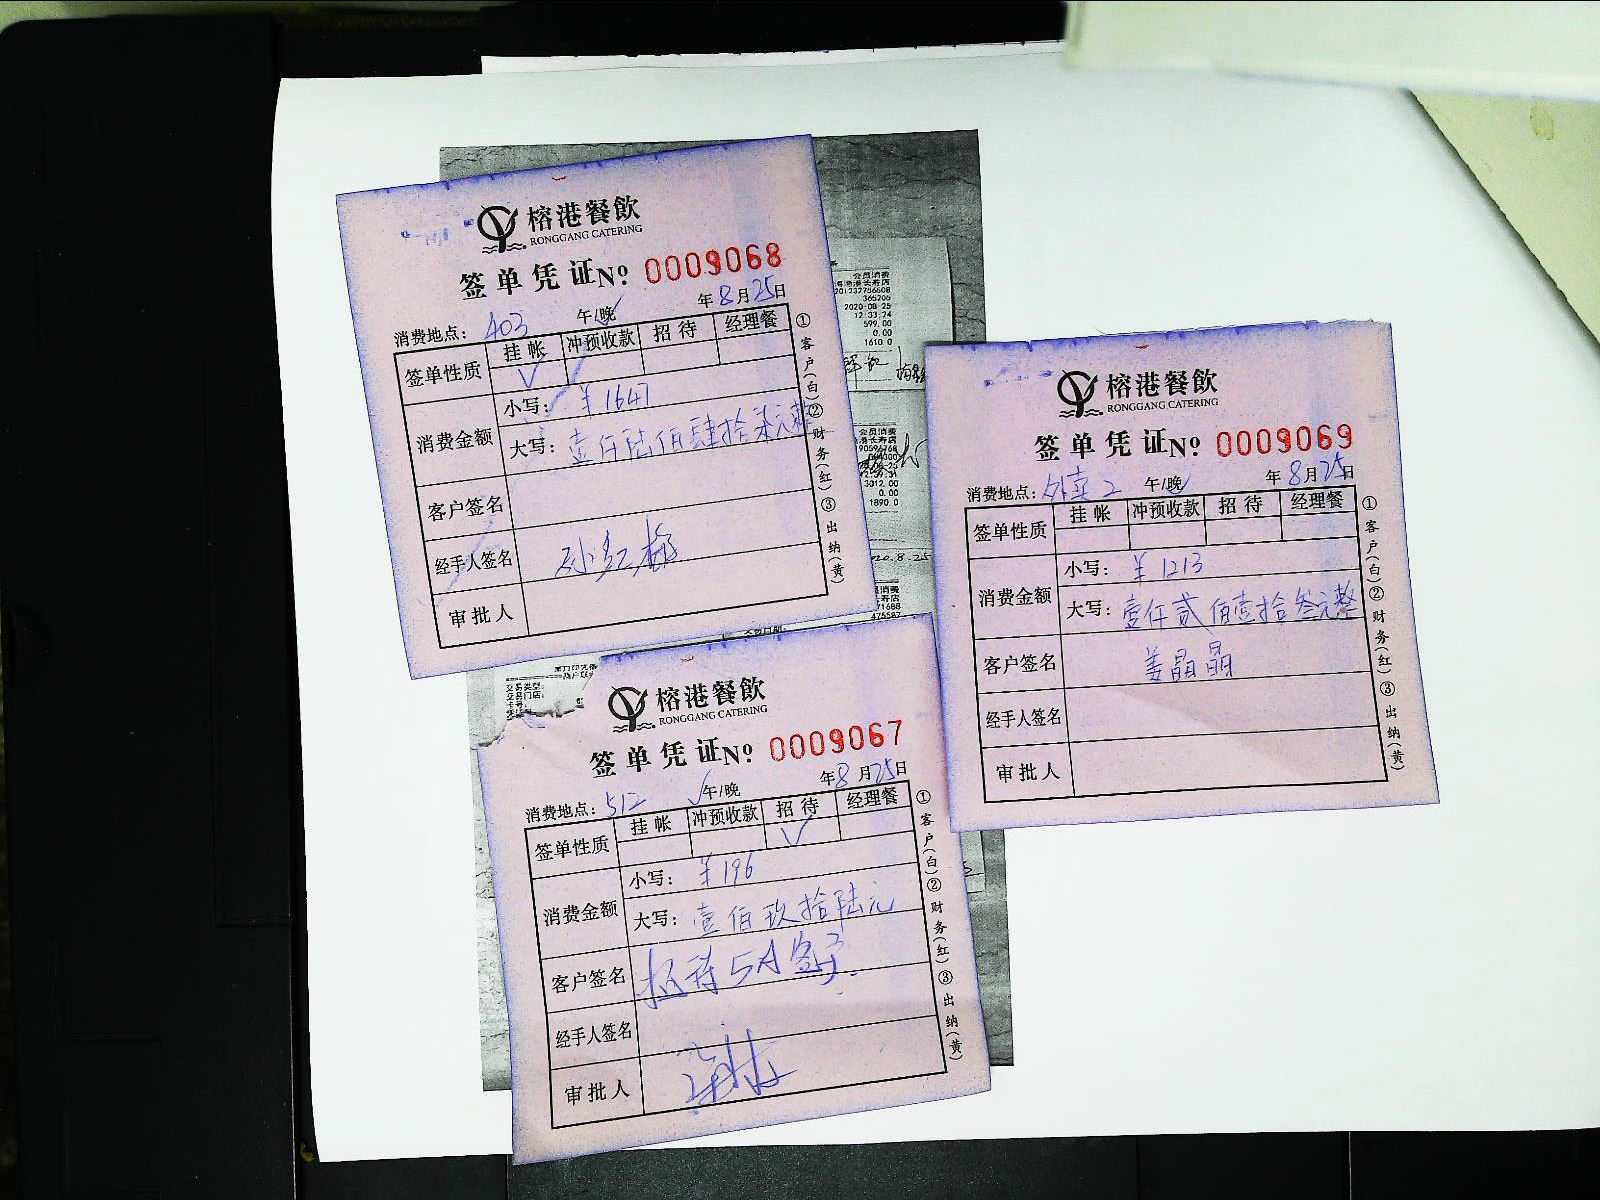 榕港餐飲
RONGGANG CATERING
签单凭证№ 0009068
年8月25日
消费地点：403 午/晚
签单性质 挂帐 冲预收款 招待 经理餐
√
消费金额 小写：¥1647
大写：壹仟陆佰肆拾柒元整
客户签名
经手人签名 孙红梅
审批人
①客户(白)②财务(红)③出纳(黄)
会员消费
365206
2020-08-25
12:33:24
599.00
0.00
1610.0
会员消费
3012.00
0.00
1890.0
榕港餐飲
RONGGANG CATERING
签单凭证№ 0009069
年8月25日
消费地点：外卖2 午/晚
签单性质 挂帐 冲预收款 招待 经理餐
消费金额 小写：¥1213
大写：壹仟贰佰壹拾叁元整
客户签名 姜晶晶
经手人签名
审批人
①客户(白)②财务(红)③出纳(黄)
交易类型:
交易门店:
卡号:
榕港餐飲
RONGGANG CATERING
签单凭证№ 0009067
年8月25日
消费地点：512 √午/晚
签单性质 挂帐 冲预收款 招待 经理餐
√
消费金额 小写：¥196
大写：壹佰玖拾陆元
客户签名 招待5A
经手人签名
审批人
①客户(白)②财务(红)③出纳(黄)